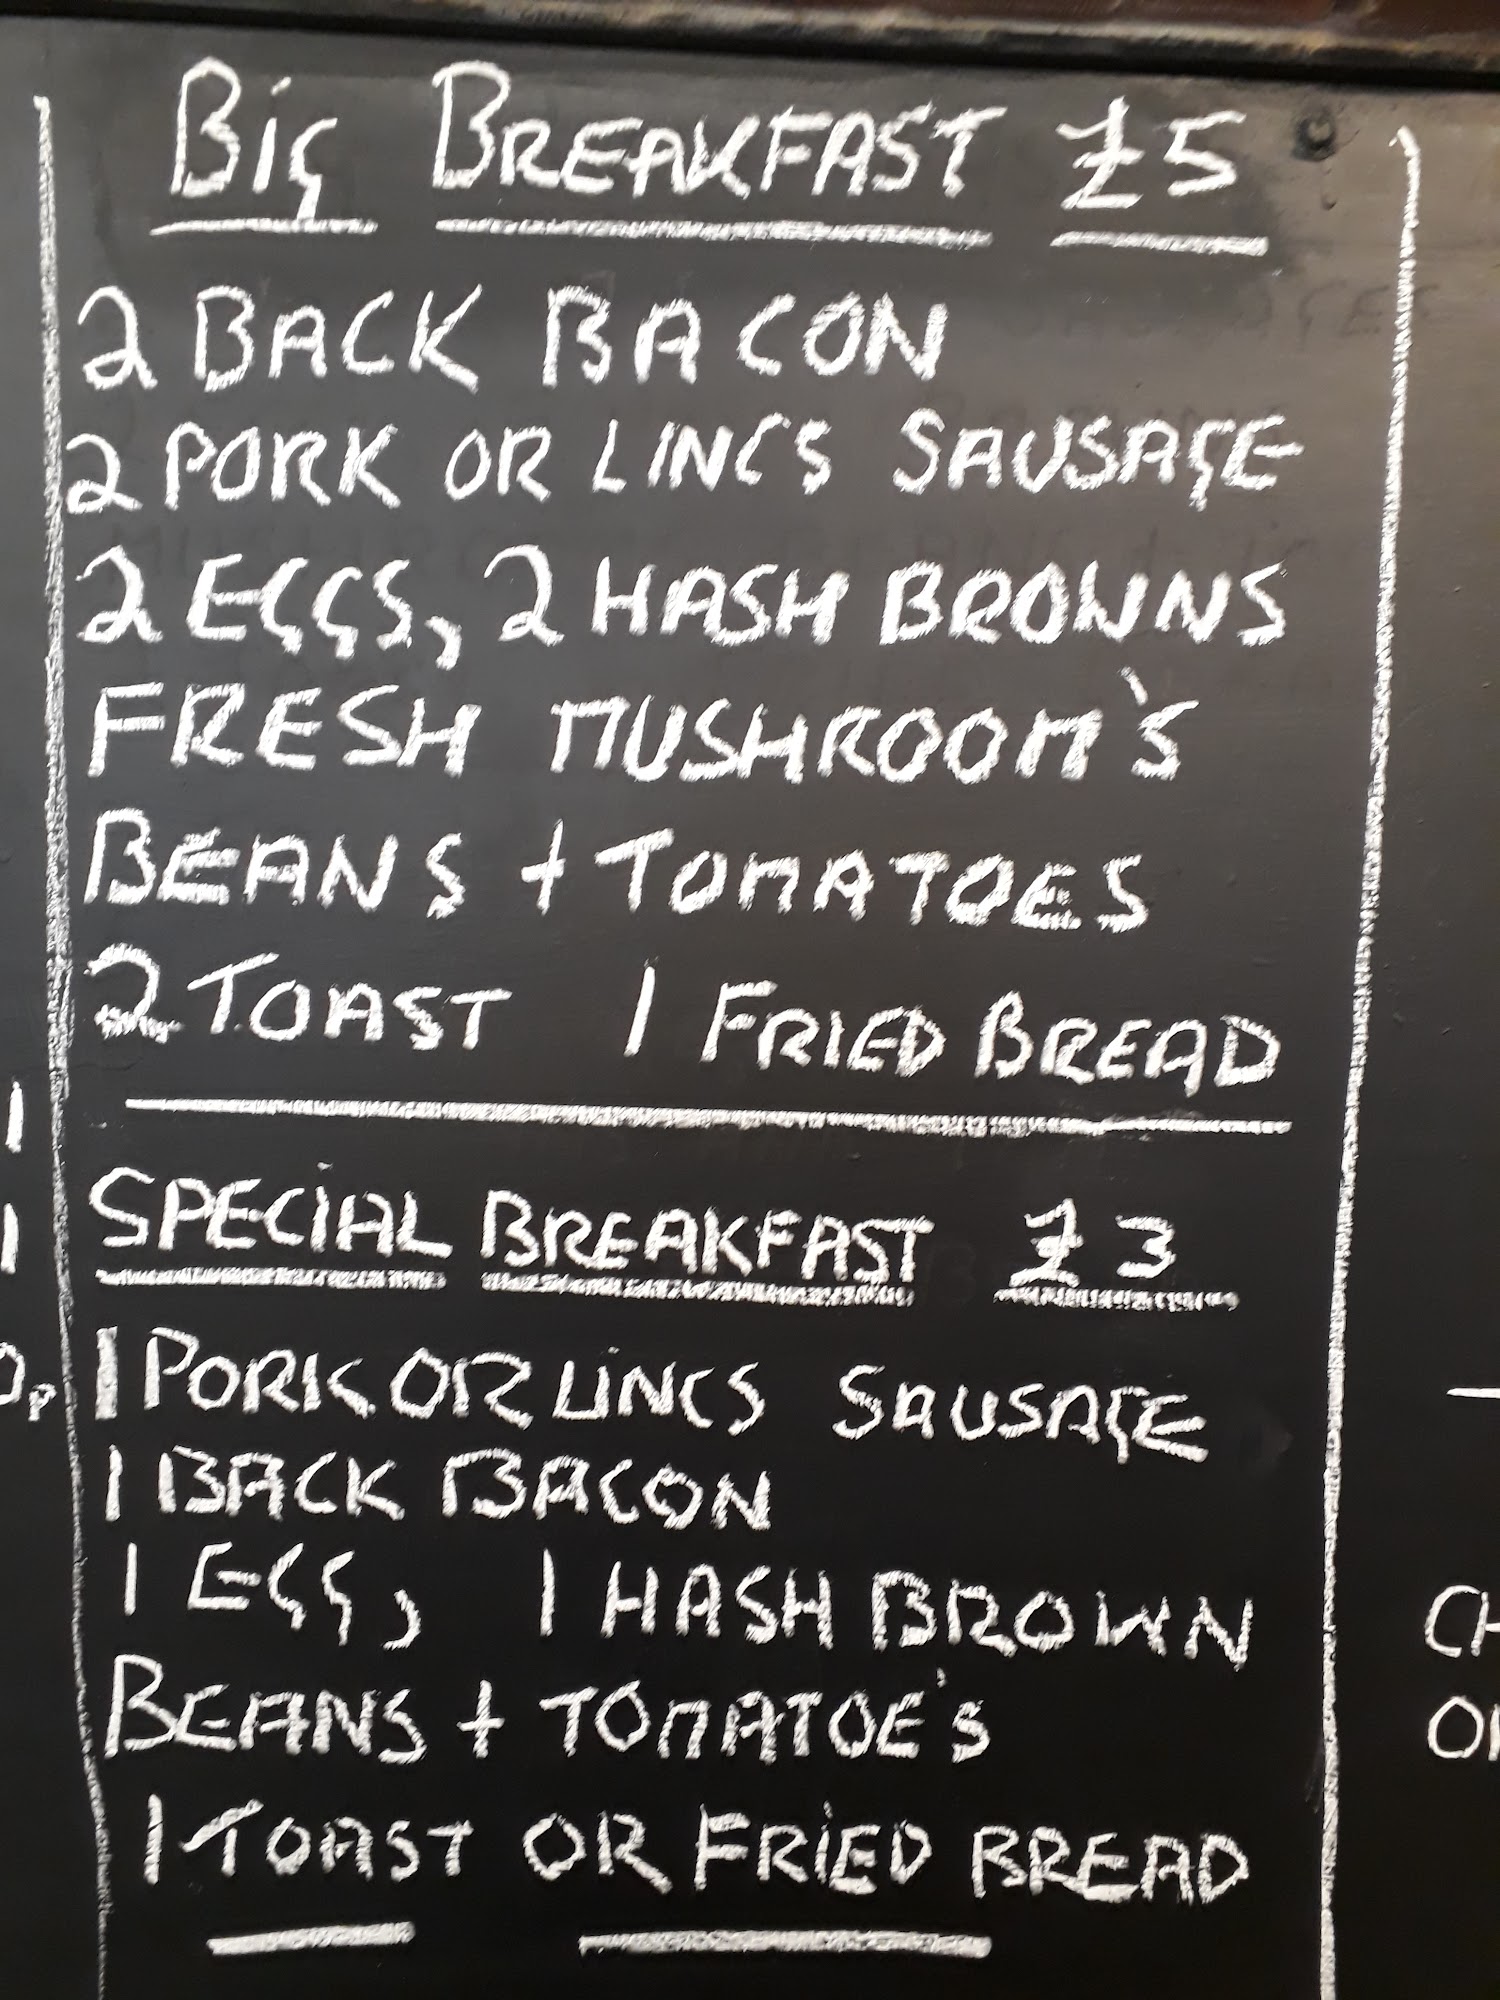 Big BREAKFAST £5
2 BACK BACON
2 PORK OR LINCS SAUSAGE
2 EGGS, 2 HASH BROWNS
FRESH MUSHROOM'S
BEANS + TOMATOES
2 TOAST 1 FRIED BREAD
SPECiAL BREAKFAST £3
1 PORK OR LINCS SAUSAGE
1 BACK BACON
1 EGG, 1 HASH BROWN
BEANS + TOMATOE'S
1 TOAST OR FRiED BREAD